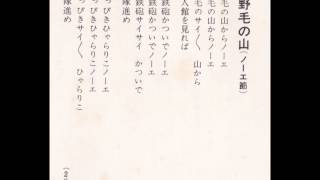 野毛の山(ノーエ節)
毛の山からノーエ
毛の山からノーエ
毛のサイ〱 山から
人館を見れば
鉄砲かついでノーエ
鉄砲かついでノーエ
鉄砲サイサイ かついで
隊進め
っぴきひゃらりこノーエ
っぴきひゃらりこノーエ
っぴきサイ〱 ひゃらりこ
隊進め